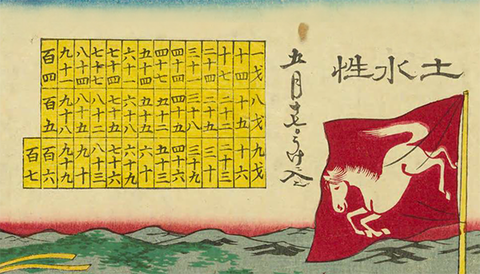 土水性
一戈 八戈 九戈
十四 十五 十六
十七 二十二 二十三
二十四 二十五 三十
三十一 三十八 三十九
四十四 四十五 四十六
四十七 五十二 五十三
五十四 五十五 六十
六十一 六十八 六十九
七十四 七十五 七十六
七十七 八十二 八十三
八十四 八十五 九十
九十一 九十八 九十九
百四 百五 百六
百七